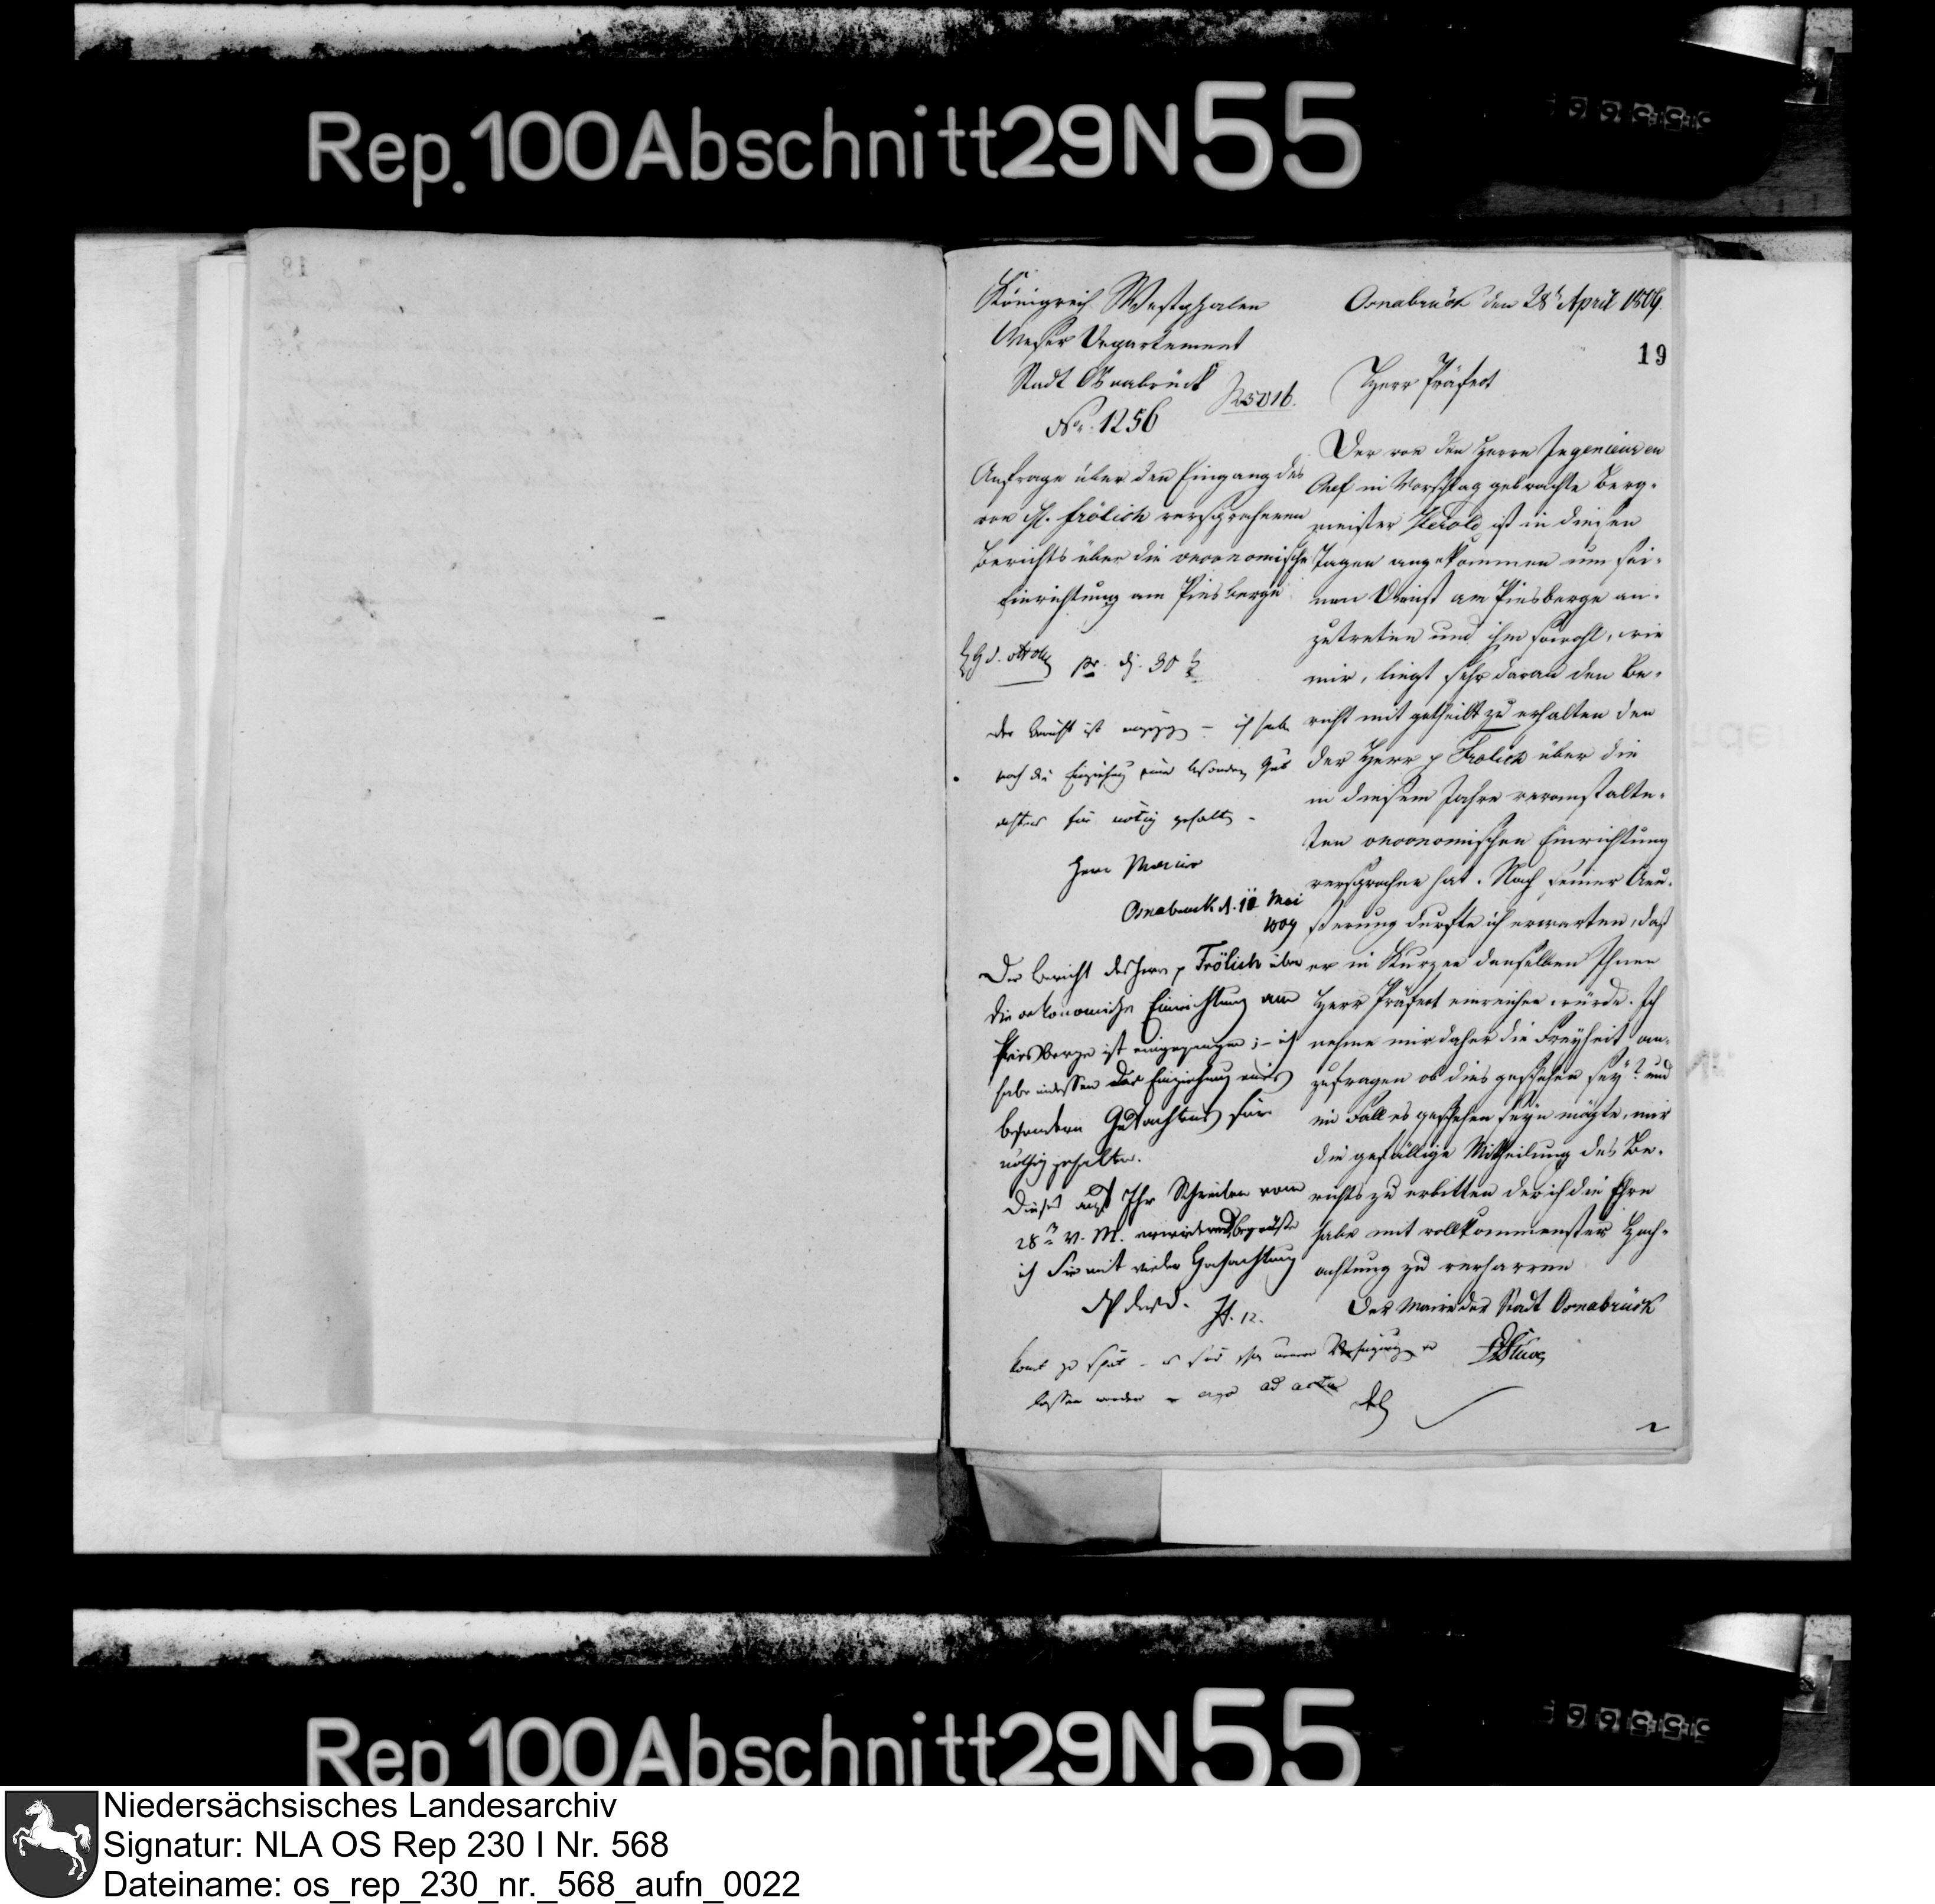 Rep. 100 Abschnitt 29 N 55
18
Königreich Westphalen
Weser Departement
Stadt Osnabrück
No. 1256
Anfrage über den Eingang des
von H. Frölich versprochenen
Berichts über die oeconomische
Einrichtung am Piesberge
pr. d. 30
der Bericht ist – ich habe
noch die Einziehung eines besondern Gut
achtens für nötig gehalten –
Herr Maire
Osnabrück d. 12 Mai
1809
Der Bericht des Herrn p Frölich über
die oekonomische Einrichtung am
Piesberge ist eingegangen; – ich
habe indessen die Einziehung eines
besondern Gutachtens für
nöthig gehalten.
Dieses auf Ihr Schreiben vom
28n v. M. erwiedernd begrüße
ich Sie mit vieler Hochachtung
Osnabrück den 28t April 1809.
19
Herr Präfect
Der von den Herrn Ingenieur en
Chef in Vorschlag gebrachte Berg-
meister Herold ist in diesen
Tagen angekommen um sei-
nen Dienst am Piesberge an-
zutreten und ihm sowohl, wie
mir, liegt sehr daran den Be-
richt mit getheilt zu erhalten den
der Herr p Frolich über die
in diesem Jahre veranstalte-
ten oeconomischen Einrichtung
versprochen hat. Nach seiner Aeu-
ßerung durfte ich erwarten, daß
er in Kurzen denselben Ihnen
Herr Präfect einreichen würde. Ich
nehme mir daher die Freyheit an-
zufragen ob dies geschehen sey? und
im Fall es geschehen seyn mögte, mir
die gefällige Mittheilung des Be-
richts zu erbitten der ich die Ehre
habe mit vollkommenster Hoch-
achtung zu verharren
Der Maire der Stadt Osnabrück
Stüve
komt zu spät – es
lassen werden – ergo ad acta
Rep 100 Abschnitt 29 N 55
Niedersächsisches Landesarchiv
Signatur: NLA OS Rep 230 I Nr. 568
Dateiname: os_rep_230_nr._568_aufn_0022